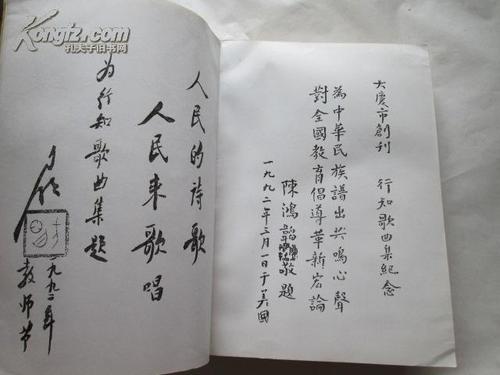 Kongfz.com
孔夫子旧书网
人民的诗歌
人民来歌唱
为行知歌曲集题
教师节
大慶市創刊 行知歌曲集紀念
為中華民族譜出共鳴心聲
對全國教育倡導革新宏論
陳鴻韜敬題
一九九二年三月一日于美國